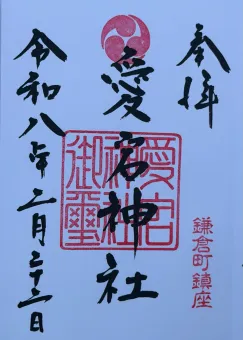 奉拝
愛宕神社
愛宕神社御璽
鎌倉町鎮座
令和八年二月二十二日